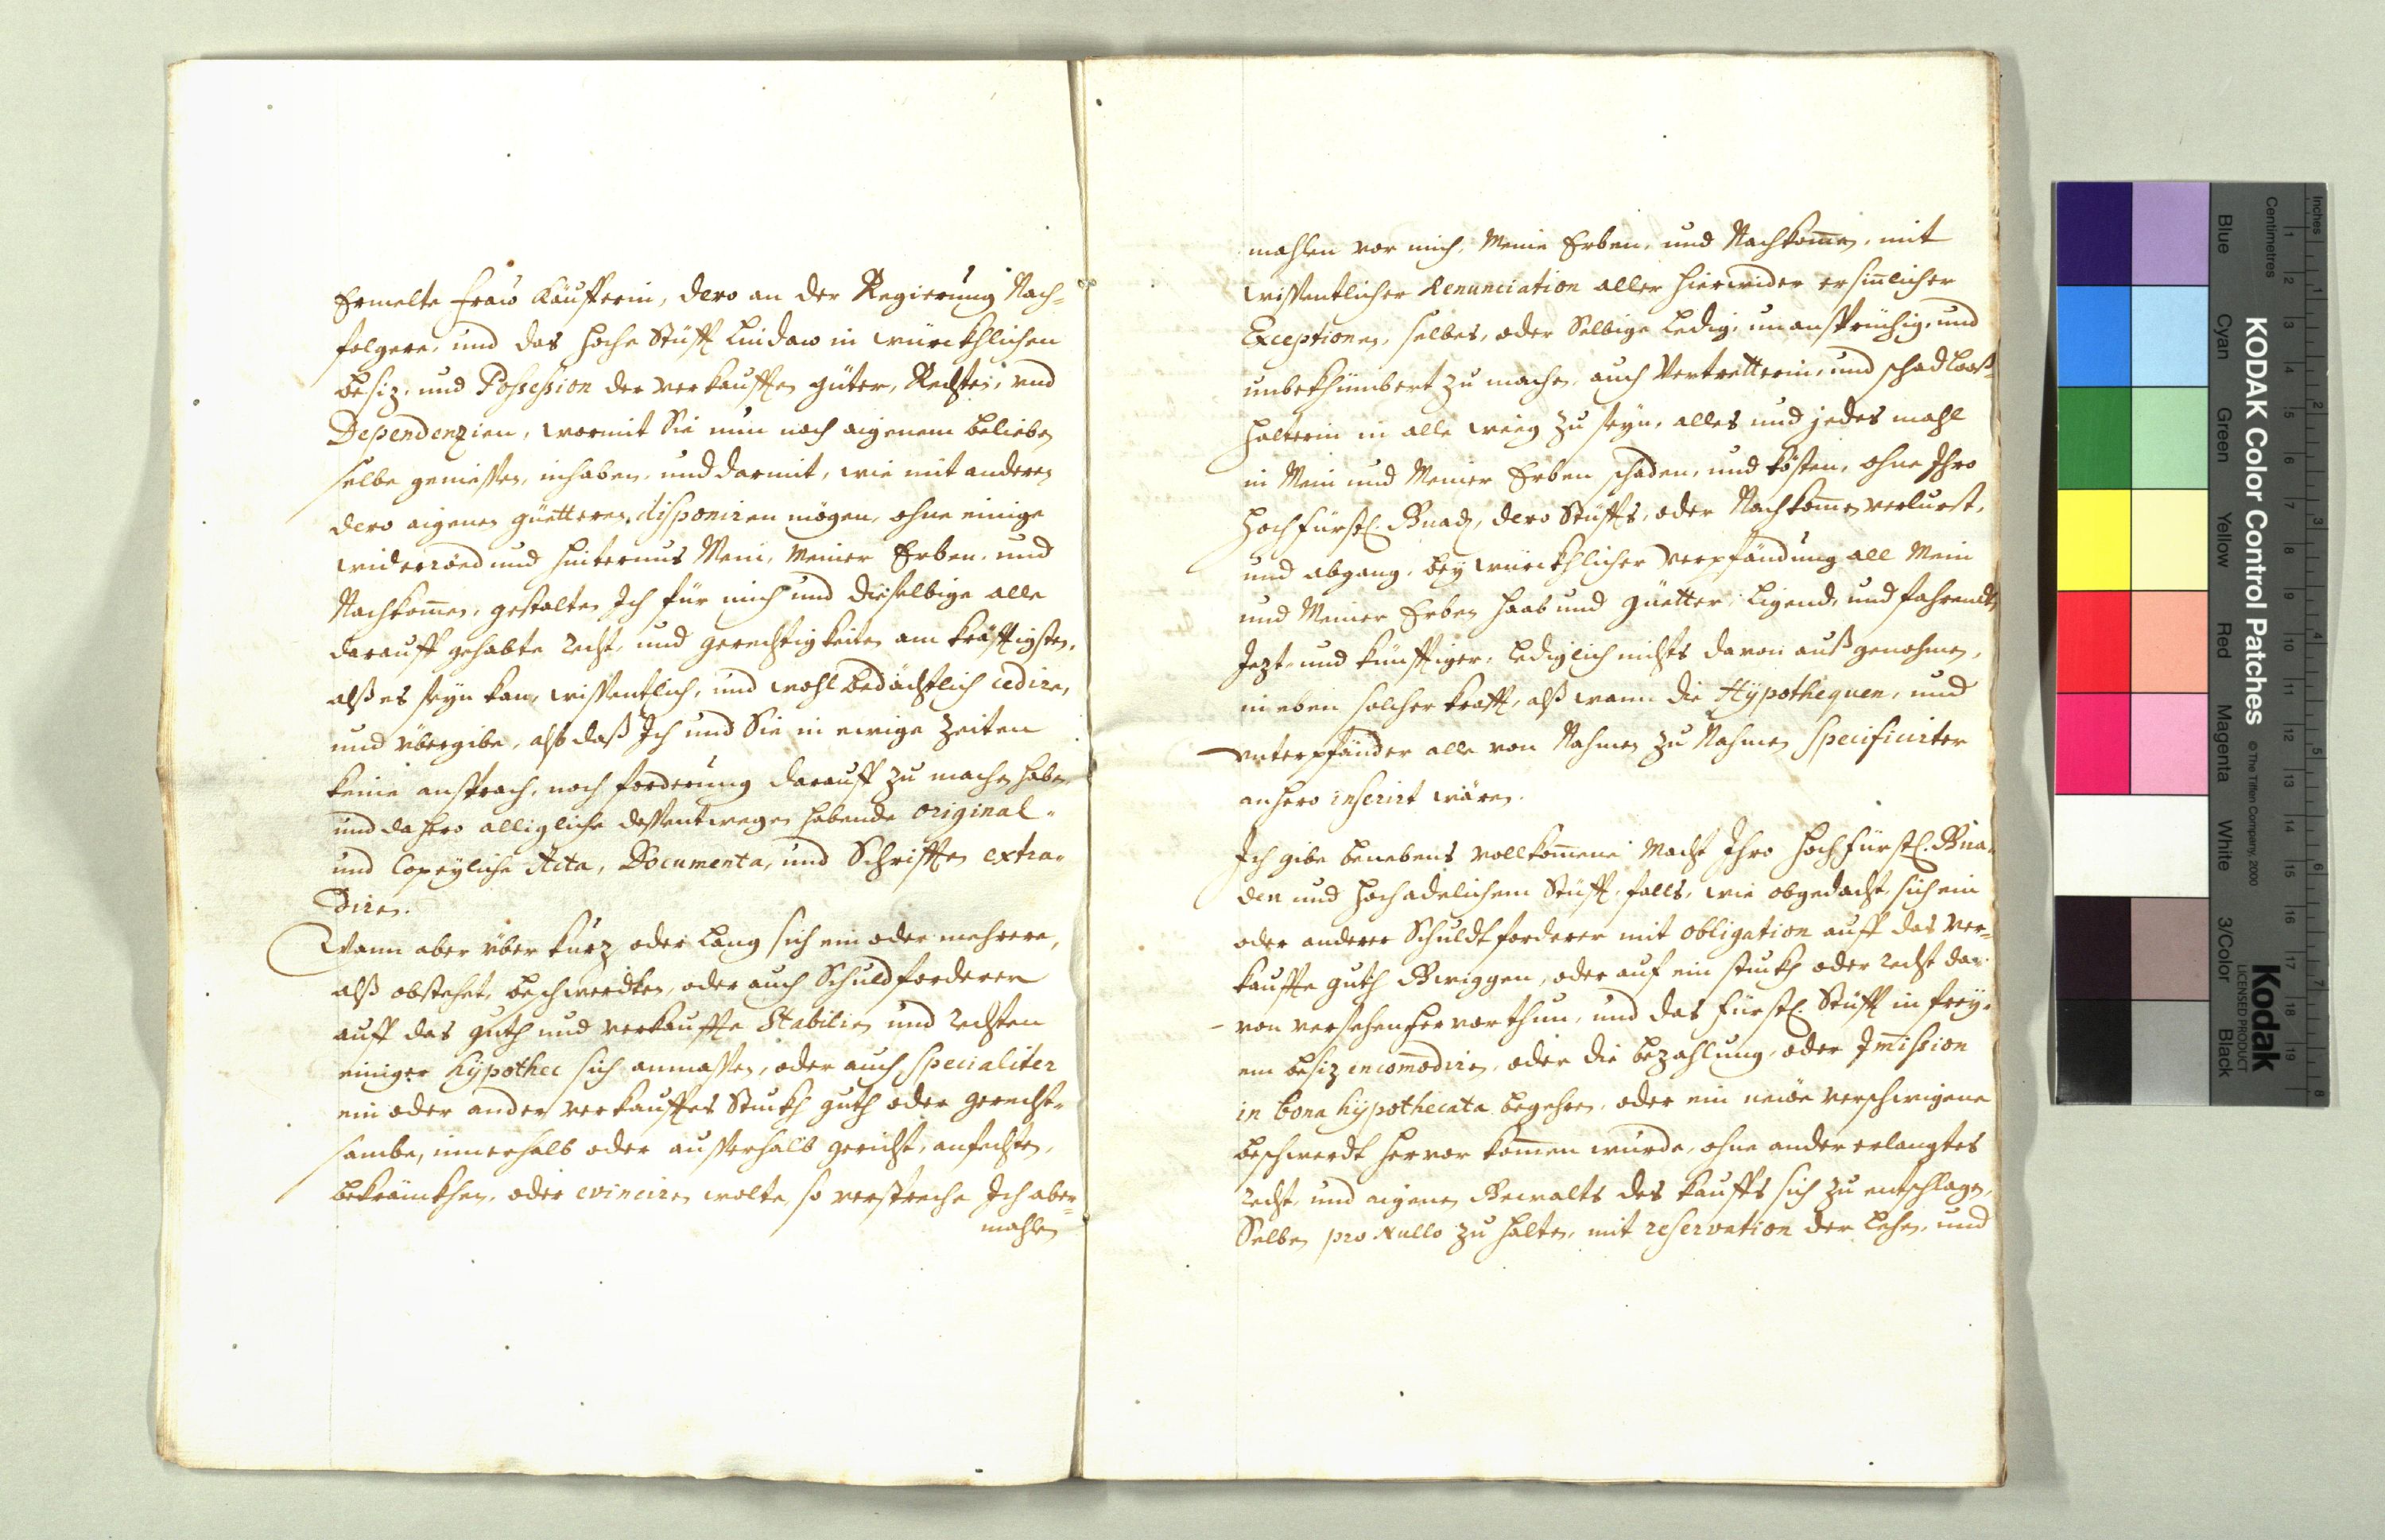 Ermelte Fraw Käufferin, dero an der Regierung Nach-
folgere, und das Hoche Stüfft Lindaw in würckhlichen
besiz, und Possession der verkaufften güter, Rechten, und
Dependenzien, wormit Sie nun nach aigenem belieben
selbe geniessen, inhaben, und darmit, wie mit anderen
dero aigenen güetteren, disponiren mögen, ohne einige
widerröd und hinternus Mein, meiner Erben, und
Nachkom̄en, gestalten Ich für mich und dieselbige alle
darauff gehabte recht, und gerechtigkeiten am kräfftigsten,
alß es seyn kan, wissentlich, und wohlbedächtlich cedire,
und übergibe, alß daß Ich und Sie in ewige Zeiten
keine ansprach, noch forderung darauff zu machen haben
und dahero alligliche dessentwegen habende original-
und Copeyliche Acta, Documenta, und Schrifften extra-
diren.
Wann aber über kurz oder lang sich ein oder mehrere,
alß obstehet, beschwerdten, oder auch Schuldforderer
auff das guth und verkauffte Stabilien und rechten
einiger hÿpothec sich anmassen, oder auch specialiter
ein oder ander verkaufftes Stuckh guth oder gerecht-
sambe, innerhalb oder ausserhalb gericht, anfechten,
bekränckhen, oder evinciren wolte, so verspreche Ich aber-
mahlen
mahlen vor mich, meine Erben, und Nachkom̄en, mit
wissentlicher Renunciation aller hierwider ersin̄licher
Exceptionen, selbes, oder Selbige ledig, unansprüchig, und
unbekhümbert zu machen, auch Vertretterin, und schadlooß-
halterin in alle weeg zu seyn, alles und jedes mahl
in Mein und Meiner Erben schaden, und kösten, ohne Ihro
Hochfürstl. Gnad, dero Stüffts, oder Nachkom̄en verlurst,
und abgang, beÿ würckhlicher Verpfändung all Mein
und Meiner Erben haab und güetter, ligend, und fahrendt,
Jezt- und künfftiger, lediglich nichts davon außgenohmen,
in eben solcher krafft, alß wann die Hÿpothequen, und
unterpfänder alle von Nahmen zu Nahmen specificirter
anhero inserirt wären.
Ich gibe benebens vollkom̄ene Macht Ihro Hochfürstl. Gna-
den und Hochadelichem Stüfft, falls, wie obgedacht, sich ein
oder anderer Schuldtforderer mit obligation auff das ver-
kauffte guth Gwiggen, oder auf ein stuckh oder recht dar-
von versehen hervorthun, und das Fürstl. Stüfft in freÿ-
em besiz incom̄odiren, oder die bezahlung, oder Im̄ission
in bona hÿpothecata begehren, oder ein neüe verschwigene
beschwerdt hervor kom̄en wurde, ohne ander erlangtes
recht, und aigenen Gewalts des kauffs sich zu entschlagen,
Selben pro Nullo zu halten, mit reservation der lehen, und
KODAK Color Control Patches
© The Tiffen Company, 2000
Kodak
LICENSED PRODUCT
Blue Cyan Green Yellow Red Magenta White 3/Color Black
Inches
Centimetres